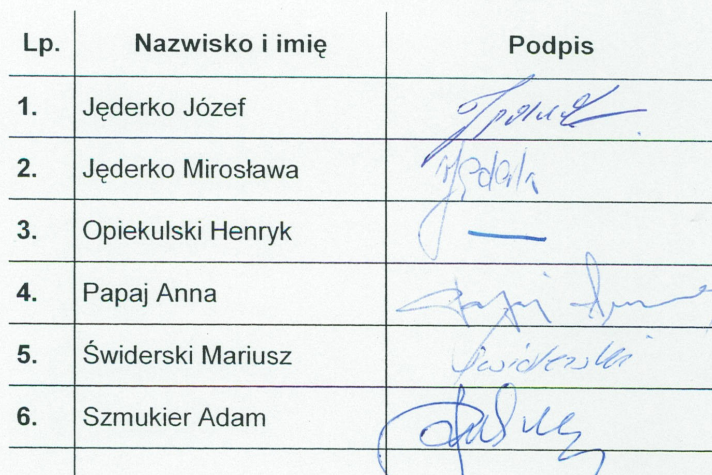 Lp. Nazwisko i imię Podpis
1. Jęderko Józef
2. Jęderko Mirosława
3. Opiekulski Henryk —
4. Papaj Anna
5. Świderski Mariusz Świderski
6. Szmukier Adam